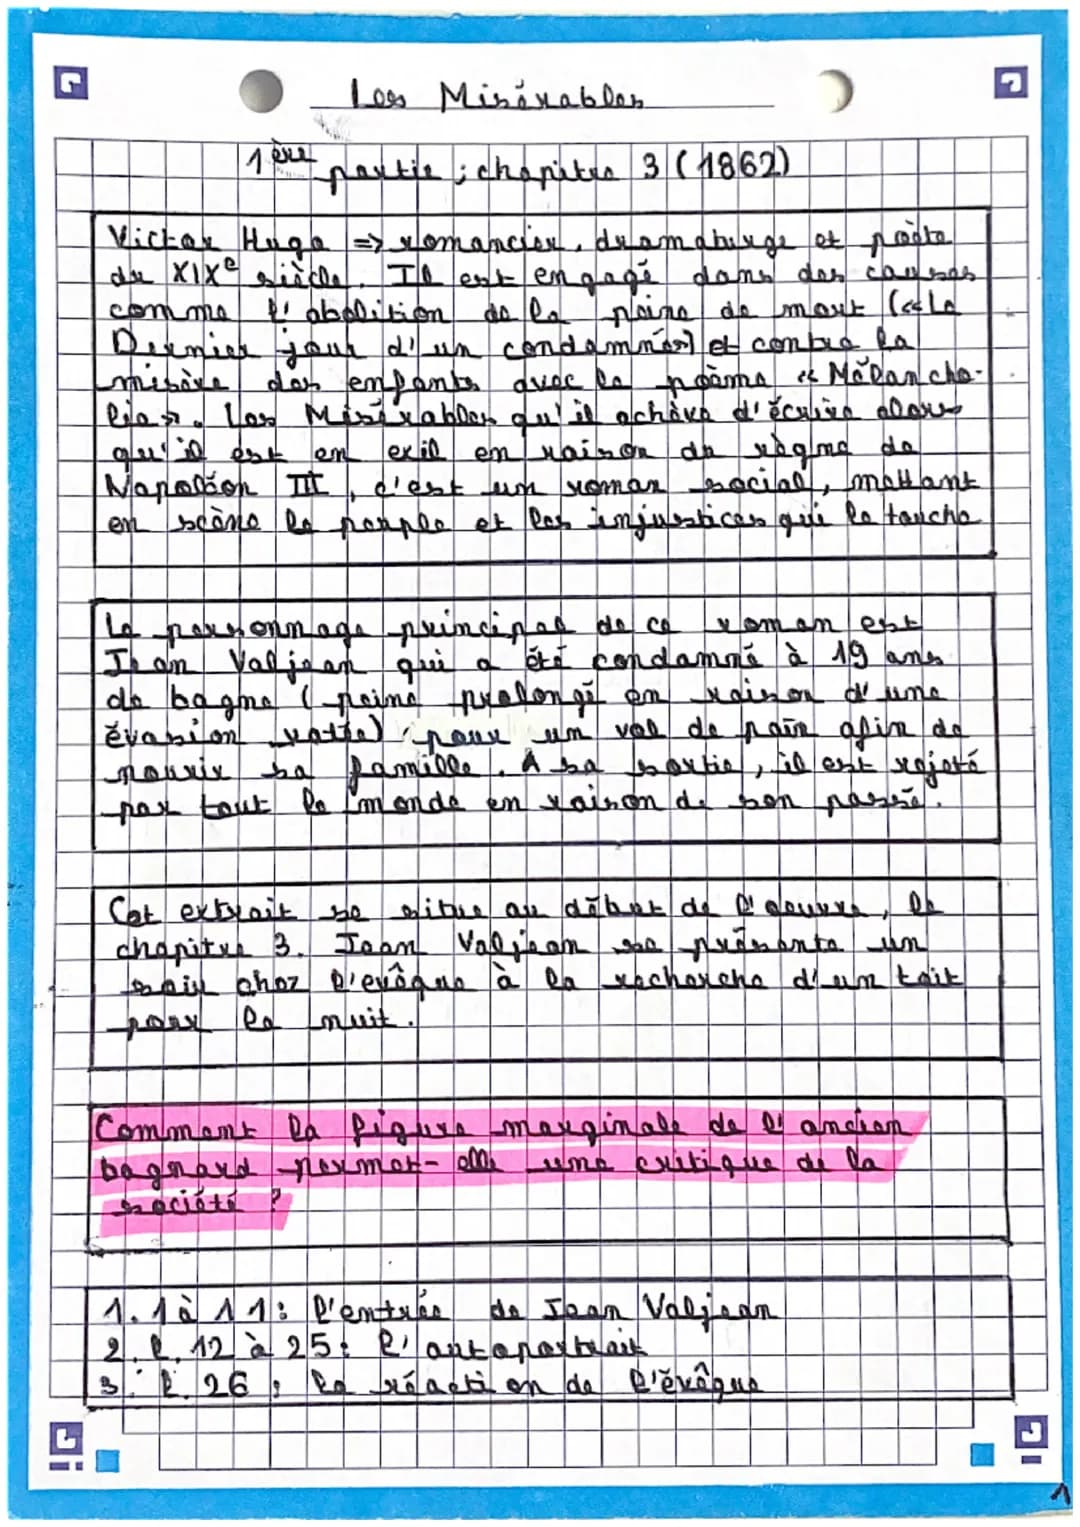 Les Misérables
1ère partie ; chapitre 3 (1862)
Victor Hugo => romancier, dramaturge et poète
du XIXe siècle. Il est engagé dans des causes
comme l'abolition de la peine de mort («Le
Dernier jour d'un condamné») et contre la
misère des enfants avec le poème « Melancho-
lia». Les Misérables qu'il achève d'écrire alors
qu'il est en exil en raison du règne de
Napoléon III, c'est un roman social, mettant
en scène le peuple et les injustices qui le touche
Le personnage principal de ce roman est
Jean Valjean qui a été condamné à 19 ans
de bagne (peine prolongé en raison d'une
évasion ratée) pour un vol de pain afin de
nourir sa famille. A sa sortie, il est rejeté
par tout le monde en raison de son passé.
Cet extrait se situe au début de l'oeuvre, le
chapitre 3. Jean Valjean se présente un
soir chez l'evêque à la recherche d'un toit
pour la nuit.
Comment la figure marginale de l'ancien
bagnard permet-elle une critique de la
société ?
1. 1 à 11: l'entrée de Jean Valjean
2. l. 12 à 25: l'autoportrait
3. l. 26 : la réaction de l'évêque
1